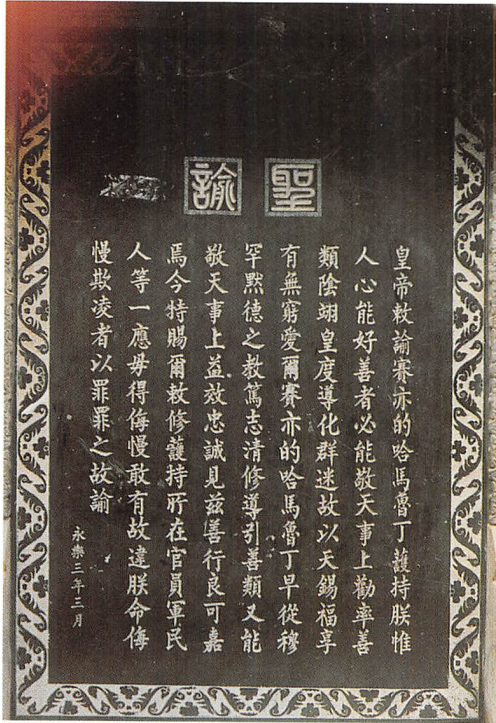 聖諭
皇帝敕諭賽亦的哈馬魯丁護持朕惟
人心能好善者必能敬天事上勸率善
類陰翊皇度導化群迷故以天錫福享
有無窮愛爾賽亦的哈馬魯丁早從穆
罕默德之教篤志清修導引善類又能
敬天事上益效忠誠見茲善行良可嘉
焉今特賜爾敕修護持所在官員軍民
人等一應毋得侮慢敢有故違朕命侮
慢欺凌者以罪罪之故諭
永樂三年三月